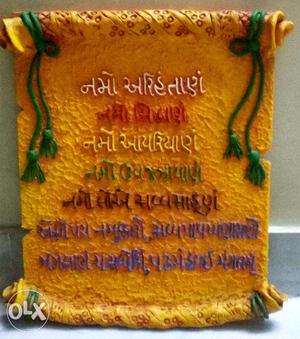 નમો અરિહંતાણં
નમો સિદ્ધાણં
નમો આયરિયાણં
નમો ઉવજ્ઝાયાણં
નમો લોએ સવ્વસાહૂણં
એસો પંચ નમુક્કારો, સવ્વ પાવપ્પણાસણો
મંગલાણં ચ સવ્વેસિં, પઢમં હવઈ મંગલમ્
OLX